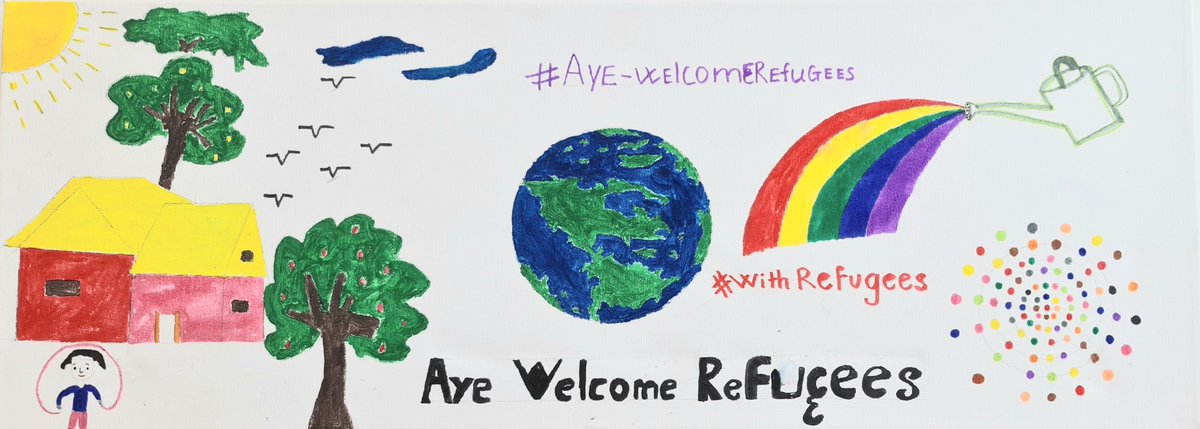 #AYE-WELCOMEREFUGEES
#withRefugees
Aye Welcome ReFUgees